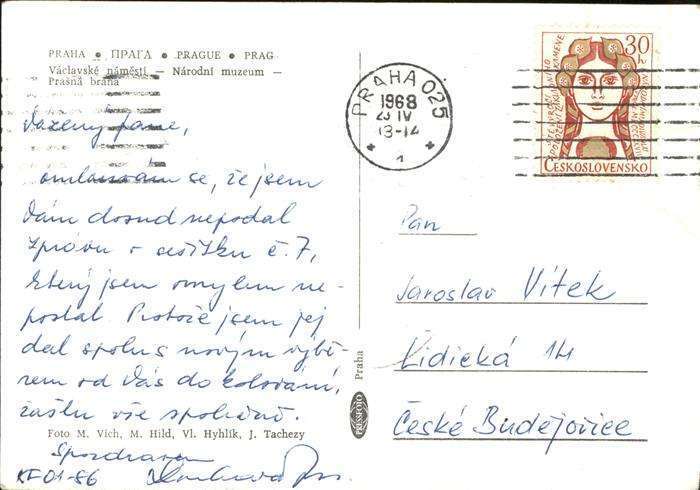 PRAHA • ПРАГА • PRAGUE • PRAG
Václavské náměstí — Národní muzeum —
Prašná brána
Vážený pane,
omlouvám se, že jsem
Vám dosud nepodal
zprávu o sešitku č. 7,
který jsem omylem ne-
poslal. Protože jsem jej
dal spolu s novým výbě-
rem od Vás do kolování,
zašlu vše společně.
Foto M. Vích, M. Hild, Vl. Hyhlík, J. Tachezy
S pozdravem
KF 01-86
PRESSFOTO Praha
PRAHA 025
1968
IV
13-14
1
30
ČESKOSLOVENSKO
Pan
Jaroslav Vítek
Lidická 14
České Budějovice